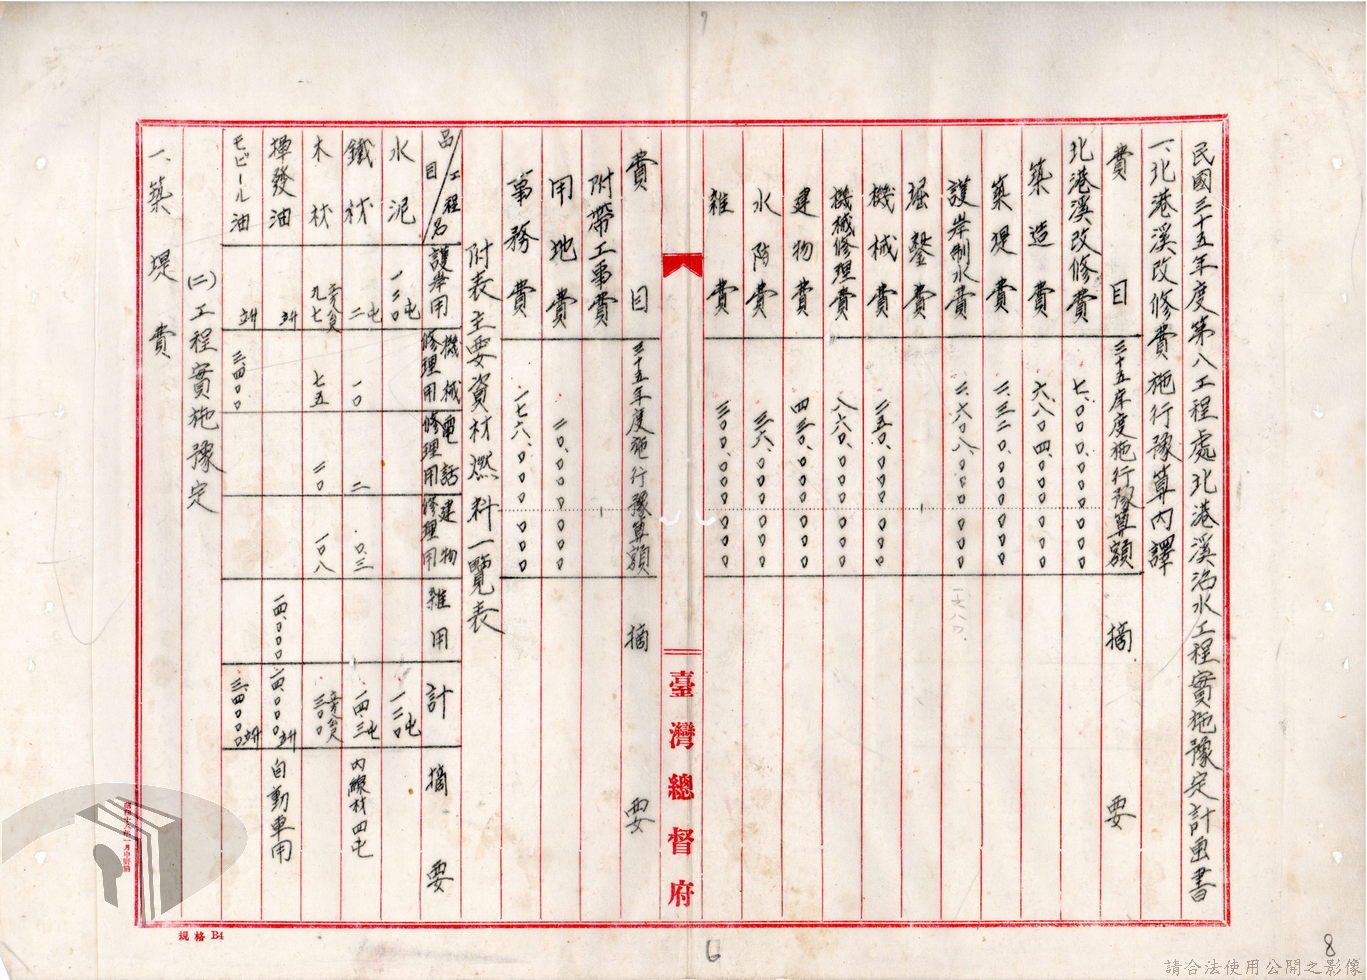 民國三十五年度第八工程處北港溪治水工程實施豫定計画書
一、北港溪改修費施行豫算內譯
費目 三十五年度施行豫算額 摘要
北港溪改修費 七、〇〇〇、〇〇〇
築造費 六、八〇四、〇〇〇
築堤費 二、三二〇、〇〇〇
護岸制水費 二、六〇八、〇〇〇
一六八〇.
堀鑿費
機械費 二五〇、〇〇〇
機械修理費 八六〇、〇〇〇
建物費 四三〇、〇〇〇
水防費 三六、〇〇〇
雜費 三〇〇、〇〇〇
臺灣總督府
費目 三十五年度施行豫算額 摘要
附帶工事費
用地費 二〇、〇〇〇
事務費 一七六、〇〇〇
附表主要資材燃料一覽表
品目/工程名 護岸用 機械修理用 電話修理用 建物修理用 雜用 計 摘要
水泥 一二〇屯 一二〇屯
鐵材 二屯 一〇 二 〇.三 一四.三屯 內線材四屯
木材 九七 七五 二〇 一〇八 三〇〇
揮發油 立升 一四、〇〇〇 一四、〇〇〇立升 自動車用
モビール油 立升 三、四〇〇 三、四〇〇立升
(二)工程實施豫定
一、築堤費
規格 B4
6
8
請合法使用公開之影像